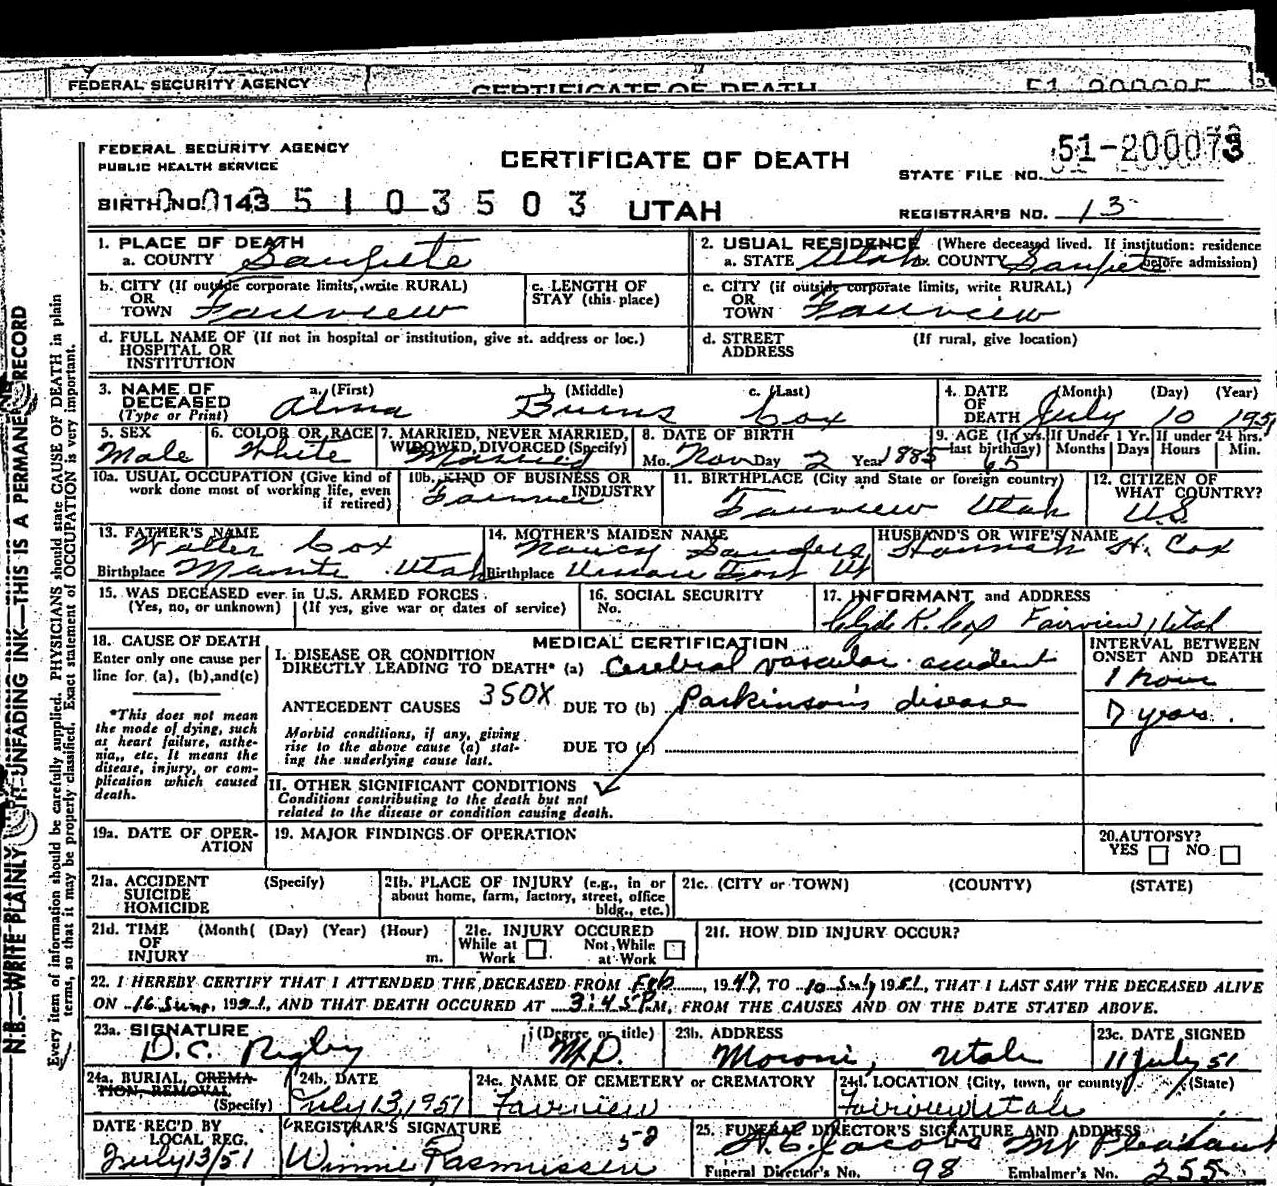 FEDERAL SECURITY AGENCY CERTIFICATE OF DEATH 51-200085
FEDERAL SECURITY AGENCY
PUBLIC HEALTH SERVICE
CERTIFICATE OF DEATH
STATE FILE NO. 51-200073
BIRTH NO. 0143 5 1 0 3 5 0 3 UTAH
REGISTRAR'S NO. 13
1. PLACE OF DEATH
a. COUNTY Sanpete
2. USUAL RESIDENCE (Where deceased lived. If institution: residence before admission)
a. STATE Utah b. COUNTY Sanpete
b. CITY (If outside corporate limits, write RURAL)
OR
TOWN Fairview
c. LENGTH OF
STAY (this place)
c. CITY (if outside corporate limits, write RURAL)
OR
TOWN Fairview
d. FULL NAME OF (If not in hospital or institution, give st. address or loc.)
HOSPITAL OR
INSTITUTION
d. STREET (If rural, give location)
ADDRESS
3. NAME OF
DECEASED
(Type or Print)
a. (First) b. (Middle) c. (Last)
Alma Burns Cox
4. DATE
OF
DEATH
(Month) (Day) (Year)
July 10 1951
5. SEX
Male
6. COLOR OR RACE
White
7. MARRIED, NEVER MARRIED,
WIDOWED, DIVORCED (Specify)
Married
8. DATE OF BIRTH
Mo. Nov Day 2 Year 1885
9. AGE (In yrs. last birthday) 65
If Under 1 Yr. Months Days
If under 24 hrs. Hours Min.
10a. USUAL OCCUPATION (Give kind of
work done most of working life, even
if retired)
10b. KIND OF BUSINESS OR
INDUSTRY
Farmer
11. BIRTHPLACE (City and State or foreign country)
Fairview Utah
12. CITIZEN OF
WHAT COUNTRY?
U.S.
13. FATHER'S NAME
Walter Cox
Birthplace Manti Utah
14. MOTHER'S MAIDEN NAME
Nancy Sanders
Birthplace Union Fort Ut
HUSBAND'S OR WIFE'S NAME
Hannah H. Cox
15. WAS DECEASED ever in U.S. ARMED FORCES
(Yes, no, or unknown) (If yes, give war or dates of service)
16. SOCIAL SECURITY
No.
17. INFORMANT and ADDRESS
Clyde K. Cox Fairview, Utah
18. CAUSE OF DEATH
Enter only one cause per
line for (a), (b), and (c)
*This does not mean
the mode of dying, such
as heart failure, asthe-
nia,, etc. It means the
disease, injury, or com-
plication which caused
death.
MEDICAL CERTIFICATION
I. DISEASE OR CONDITION
DIRECTLY LEADING TO DEATH* (a) Cerebral vascular accident
ANTECEDENT CAUSES 350X DUE TO (b) Parkinson's disease
Morbid conditions, if any, giving
rise to the above cause (a) stat-
ing the underlying cause last.
DUE TO (c)
II. OTHER SIGNIFICANT CONDITIONS
Conditions contributing to the death but not
related to the disease or condition causing death.
INTERVAL BETWEEN
ONSET AND DEATH
1 hour
7 years.
19a. DATE OF OPER-
ATION
19. MAJOR FINDINGS OF OPERATION
20. AUTOPSY?
YES NO
21a. ACCIDENT (Specify)
SUICIDE
HOMICIDE
21b. PLACE OF INJURY (e.g., in or
about home, farm, factory, street, office
bldg., etc.)
21c. (CITY or TOWN) (COUNTY) (STATE)
21d. TIME (Month( (Day) (Year) (Hour)
OF
INJURY m.
21e. INJURY OCCURED
While at Work Not While at Work
21f. HOW DID INJURY OCCUR?
22. I HEREBY CERTIFY THAT I ATTENDED THE DECEASED FROM Feb, 1947, TO 10 July 1951, THAT I LAST SAW THE DECEASED ALIVE
ON 16 June, 1951, AND THAT DEATH OCCURED AT 3:45 P.M, FROM THE CAUSES AND ON THE DATE STATED ABOVE.
23a. SIGNATURE (Degree or title)
D.C. Rigby M.D.
23b. ADDRESS
Moroni, Utah
23c. DATE SIGNED
11 July 51
24a. BURIAL, CREMA-
TION, REMOVAL
(Specify)
24b. DATE
July 13, 1951
24c. NAME OF CEMETERY or CREMATORY
Fairview
24d. LOCATION (City, town, or county) (State)
Fairview Utah
DATE REC'D BY
LOCAL REG.
July 13/51
REGISTRAR'S SIGNATURE 52
Winnie Rasmussen
25. FUNERAL DIRECTOR'S SIGNATURE AND ADDRESS
A.E. Jacobs Mt Pleasant
Funeral Director's No. 98 Embalmer's No. 255
N.B.—WRITE PLAINLY WITH UNFADING INK—THIS IS A PERMANENT RECORD
Every item of information should be carefully supplied. PHYSICIANS should state CAUSE OF DEATH in plain
terms, so that it may be properly classified. Exact statement of OCCUPATION is very important.